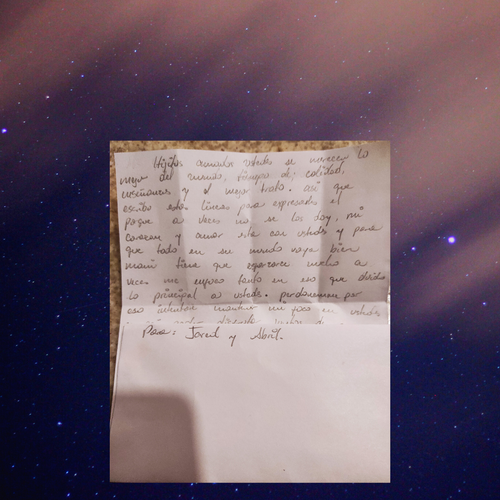 Hijitos amados ustedes se merecen lo
mejor del mundo, tiempo de calidad,
enseñanzas y el mejor trato. así que
escribo estas líneas para expresarles el
porque a veces no se los doy, mi
corazon y amor esta con ustedes y para
que todo en su mundo vaya bien
mami tiene que esforzarce mucho a
veces me enfoco tanto en eso que olvido
lo principal a ustedes. perdonenme por
eso mi foco en ustedes
Para: Jared y Abril.